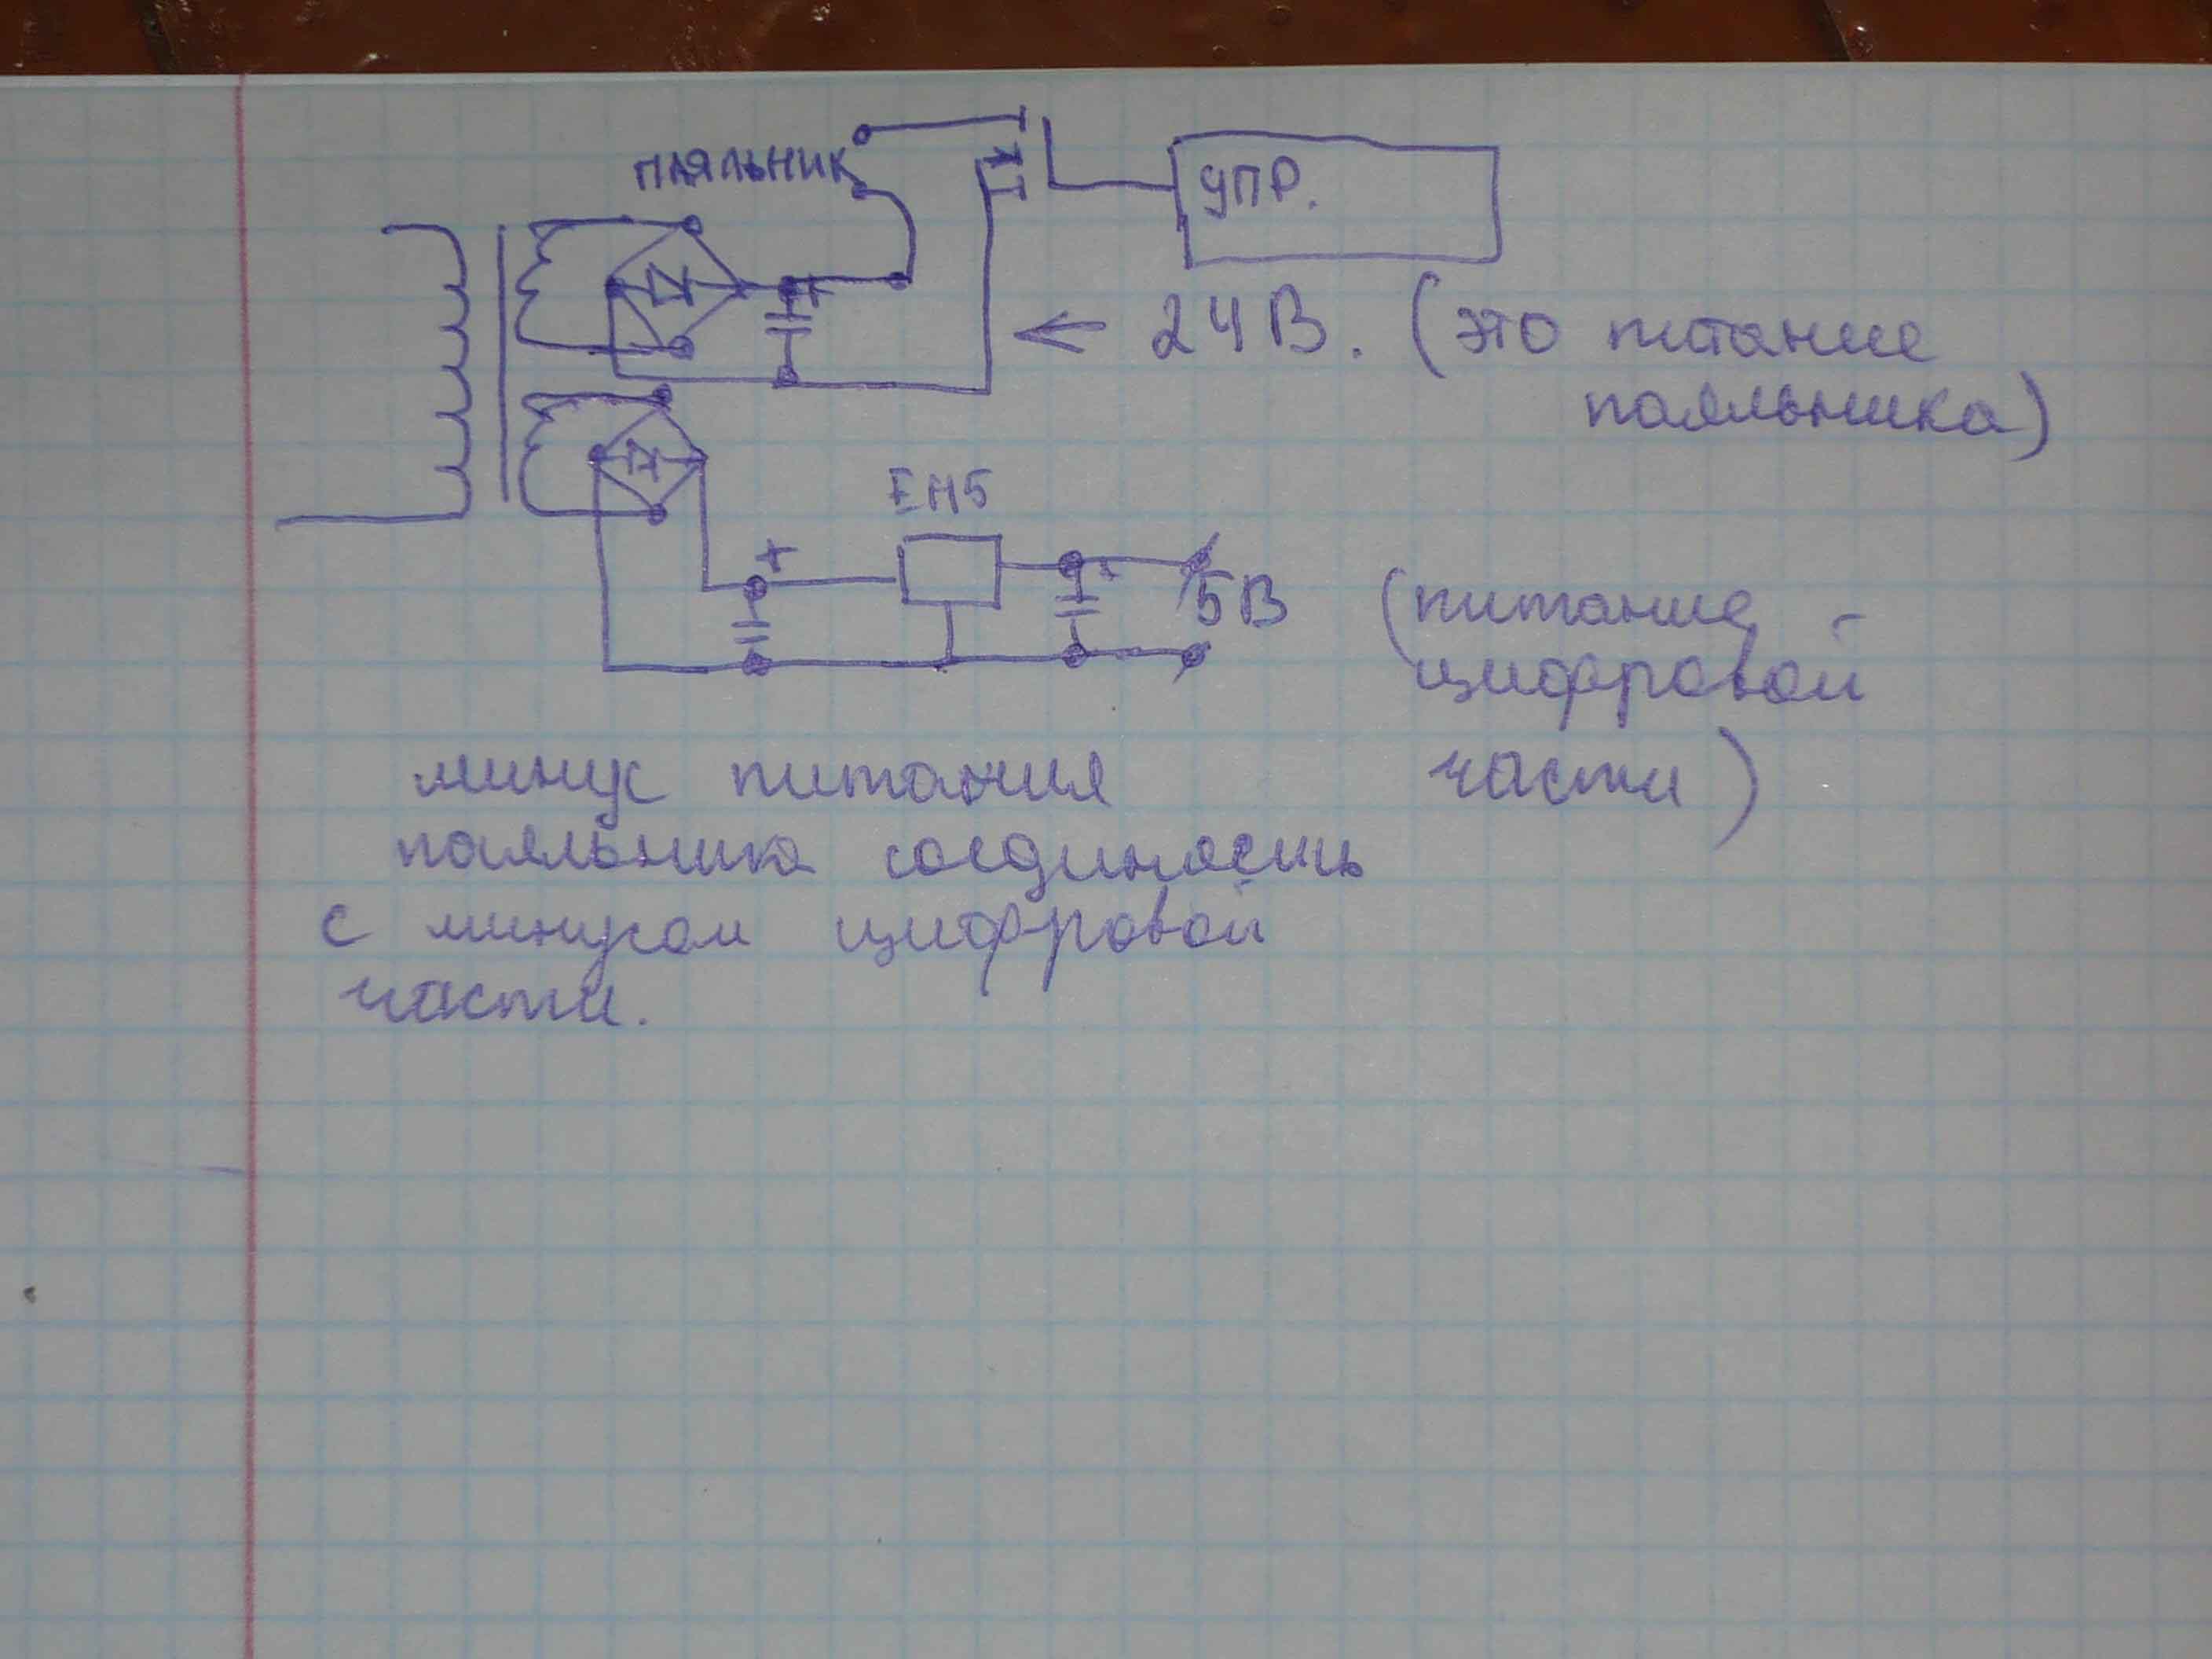 ПАЯЛЬНИК
УПР.
+
← 24В. (это питание
паяльника)
ЕН5
+
+
5В
(питание
цифровой
части)
минус питания
паяльника соединясть
с минусом цифровой
части.